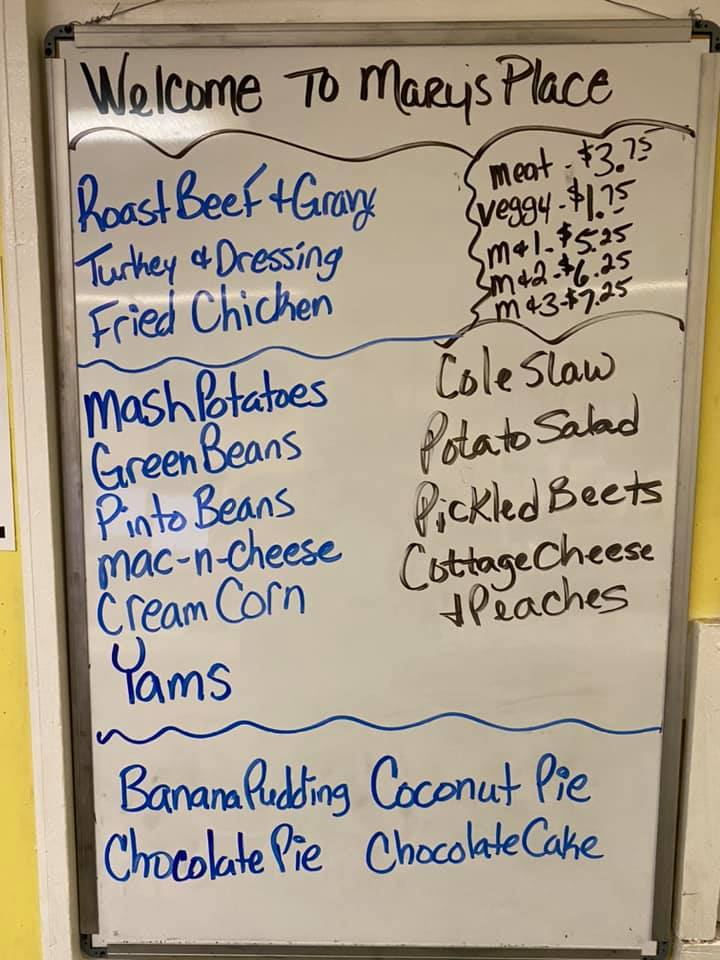 Welcome To Mary's Place
Roast Beef + Gravy
Turkey & Dressing
Fried Chicken
meat - $3.75
veggy - $1.75
m & 1 - $5.25
m & 2 - $6.25
m & 3 - $7.25
Mash Potatoes
Green Beans
Pinto Beans
mac-n-cheese
Cream Corn
Yams
Cole Slaw
Potato Salad
Pickled Beets
Cottage Cheese
+ Peaches
Banana Pudding Coconut Pie
Chocolate Pie Chocolate Cake